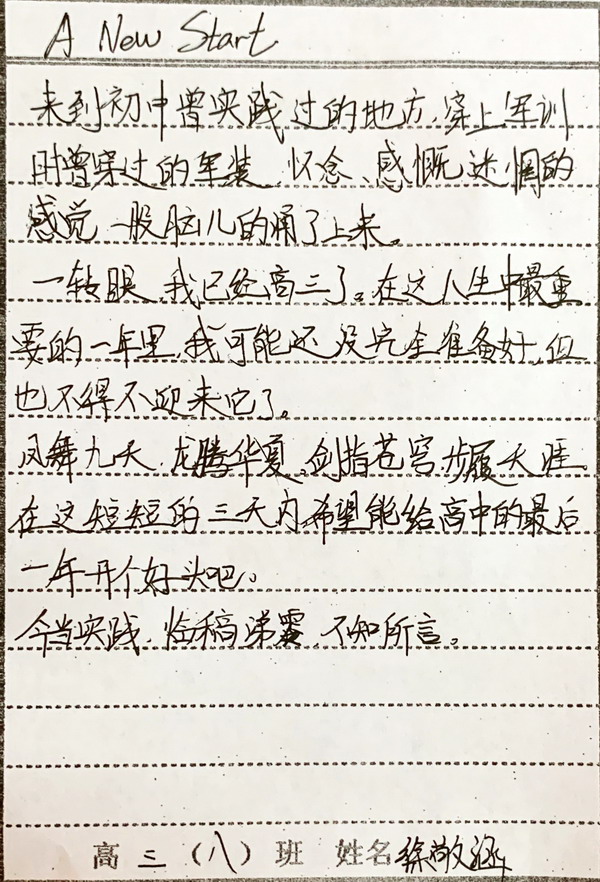 A New Start
来到初中曾实践过的地方,穿上军训
时曾穿过的军装,怀念、感慨、迷惘的
感觉一股脑儿的涌了上来。
一转眼,我已经高三了。在这人生中最重
要的一年里,我可能还没完全准备好,但
也不得不迎来它了。
凤舞九天,龙腾华夏,剑指苍穹,步履天涯。
在这短短的三天内,希望能给高中的最后
一年开个好头吧。
今当实践,临稿涕零,不知所言。
高三(八)班 姓名徐敬涵